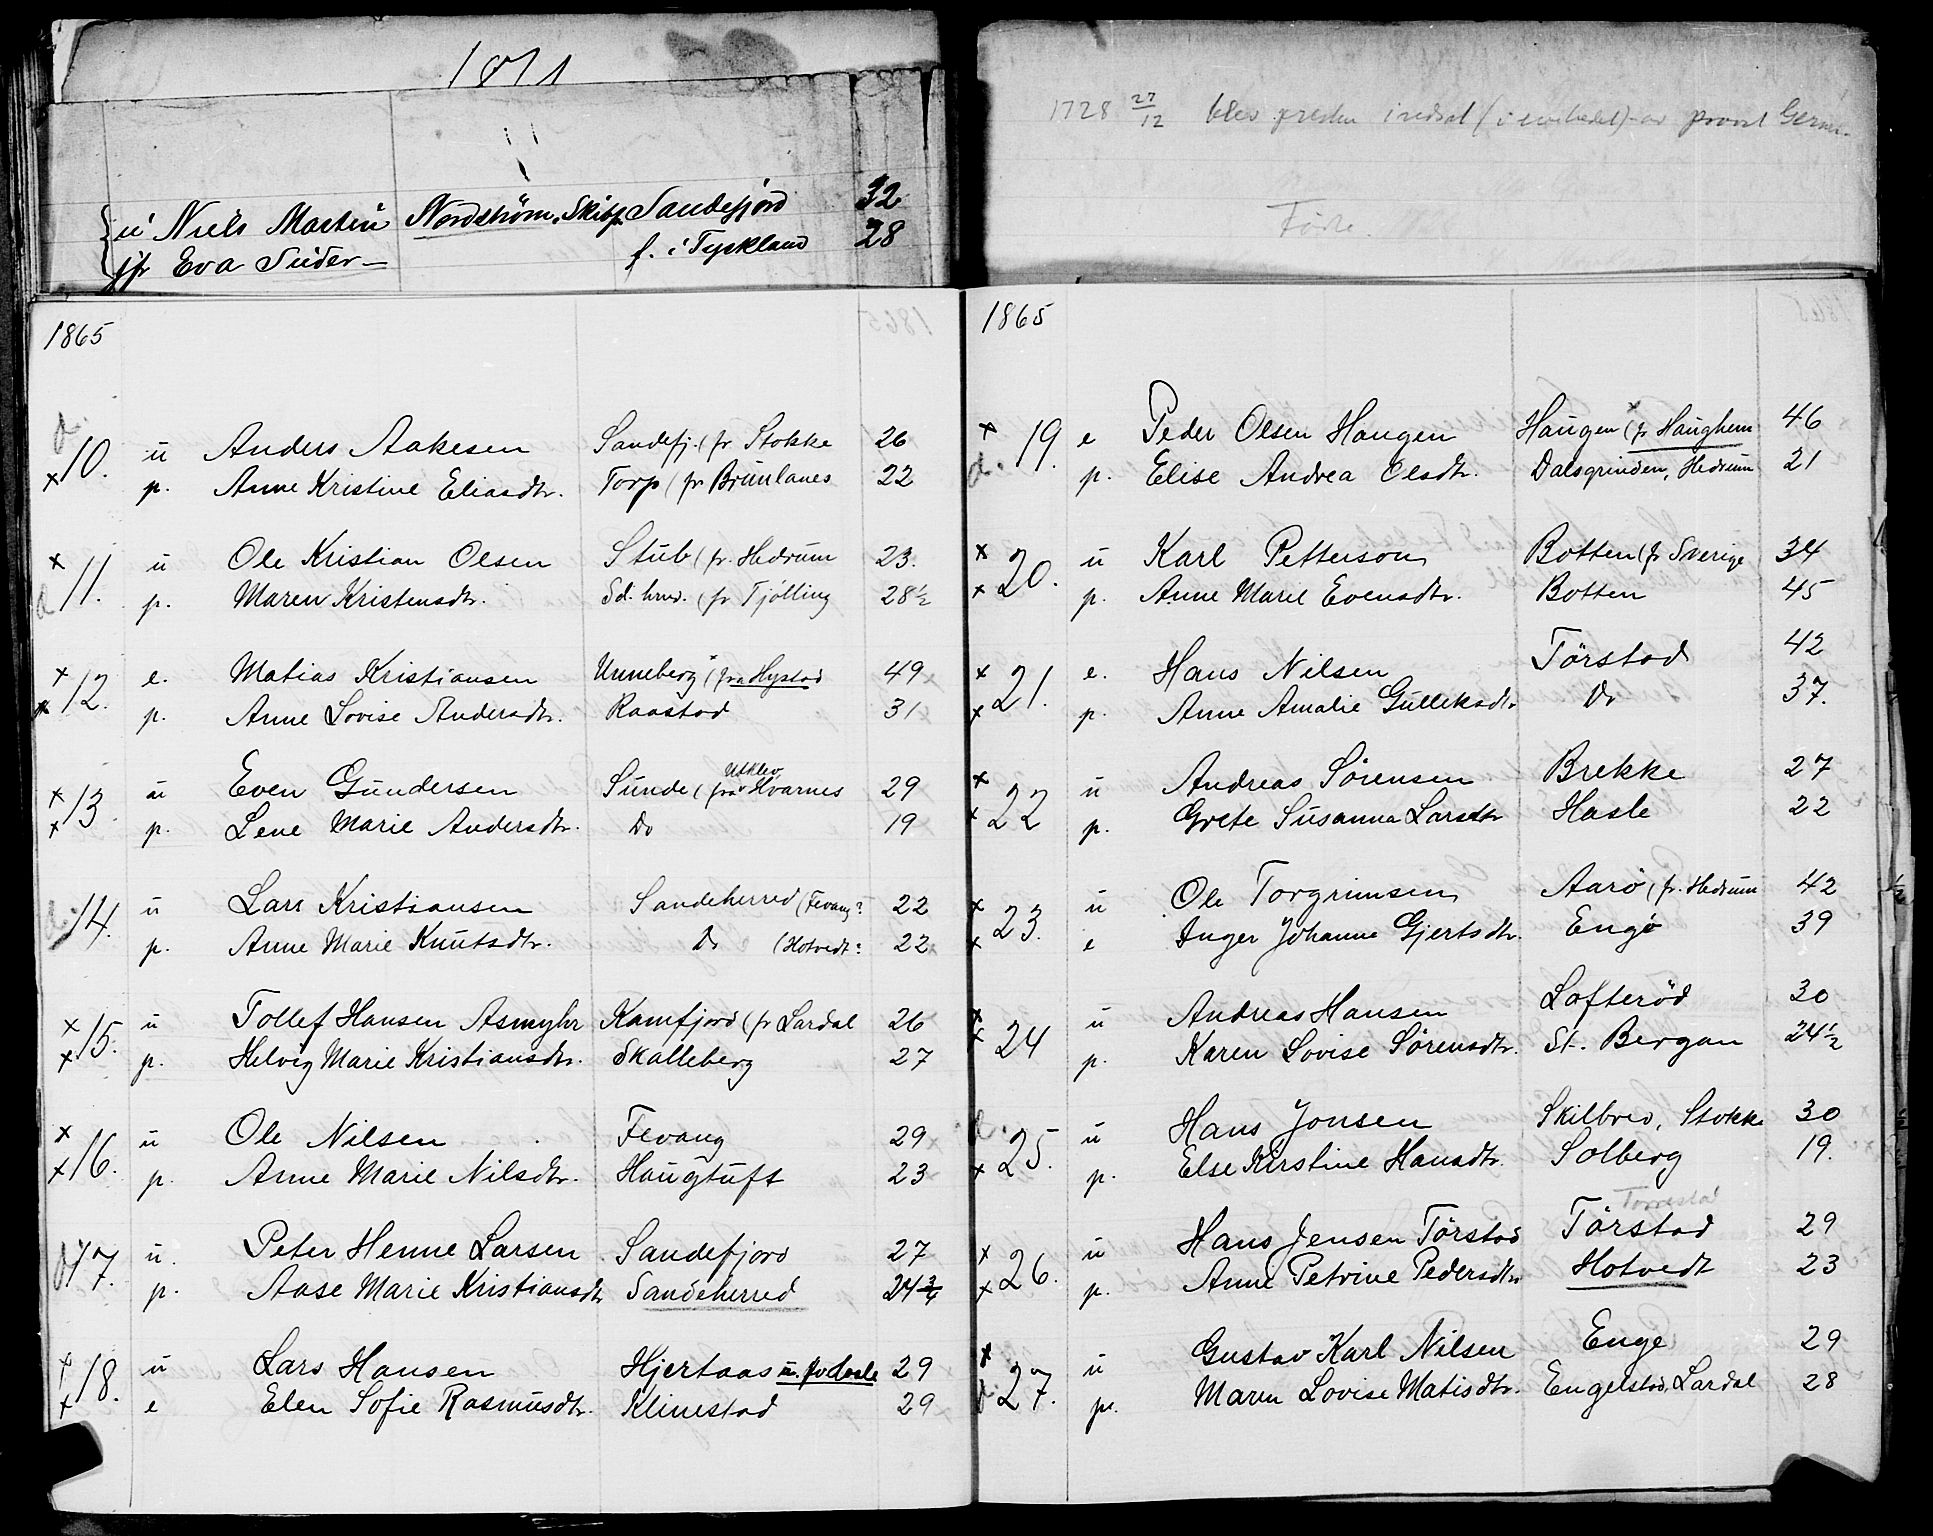 1871
u Niels Martin Nordstrøm, Skibf. Sandefjord 32
jfr Eva Suder f. i Tyskland 28
1865
10. u Anders Aakesen Sandefj. (fr Stokke 26
p. Anne Kristine Eliasdtr. Torp (fr Brunlanes 22
11. u Ole Kristian Olsen Stub (fr. Hedrum 23.
p. Maren Kristensdtr. Sd. hrrd. (fr Tjølling 28½
12. e. Matias Kristiansen Unneberg (fra Hystad 49
p. Anne Lovise Andersdtr. Raastad 31
Utklev
13. u Even Gundersen Sunde (fra Hvarnes 29
p. Lene Marie Andersdtr. Do 19
14. u Lars Kristiansen Sandeherred (Fevang? 22
p. Anne Marie Knutsdtr. Do (Hotvedt? 22
15. u Tollef Hansen Asmyhr Kamfjord (fr Lardal 26
p. Helvig Marie Kristiansdtr. Skalleberg 27
16. u Ole Nilsen Fevang 29
p. Anne Marie Nilsdtr. Haugtuft 23
17. u. Peter Henne Larsen Sandefjord 27
p. Aase Marie Kristiansdtr Sandeherred 24¾
18. u Lars Hansen Hjertaas u. 29
e Elen Sofie Rasmusdtr. Klinestad 29
1728 27/12 blev præsten indsat (i embedet) av provst
Føste.
1865
19. e Peder Olsen Haugen Haugen (fr Haughem 46
p. Elise Andrea Olsdtr. Dalsgrinden, Hedrum 21
20. u Karl Petterson Botten (fr Sverige 34
p. Anne Marie Evensdtr. Botten 45
21. e. Hans Nilsen Tørstad 42
p. Anne Amalie Gulleksdtr Do 37.
22 u Andreas Sørensen Brekke 27
p. Grete Susanna Larsdtr Hasle 22
23. u Ole Torgrimsen Aarø (fr. Hedrum 42
e Inger Johanne Gjertsdtr. Engø 39
24 u Andreas Hansen Lofterød 30
p. Karen Lovise Sørensdtr. St. Bergan 24½
25. u Hans Jonsen Skilbred, Stokke 30
p. Else Kirstine Hansdtr. Solberg 19.
Torrestad
26. u Hans Jensen Tørstad Tørstad 29
p. Anne Petrine Pedersdtr Hotvedt 23
27. u Gustav Karl Nilsen Enge 29
p. Maren Lovise Matisdtr. Engelstad, Lardal 28